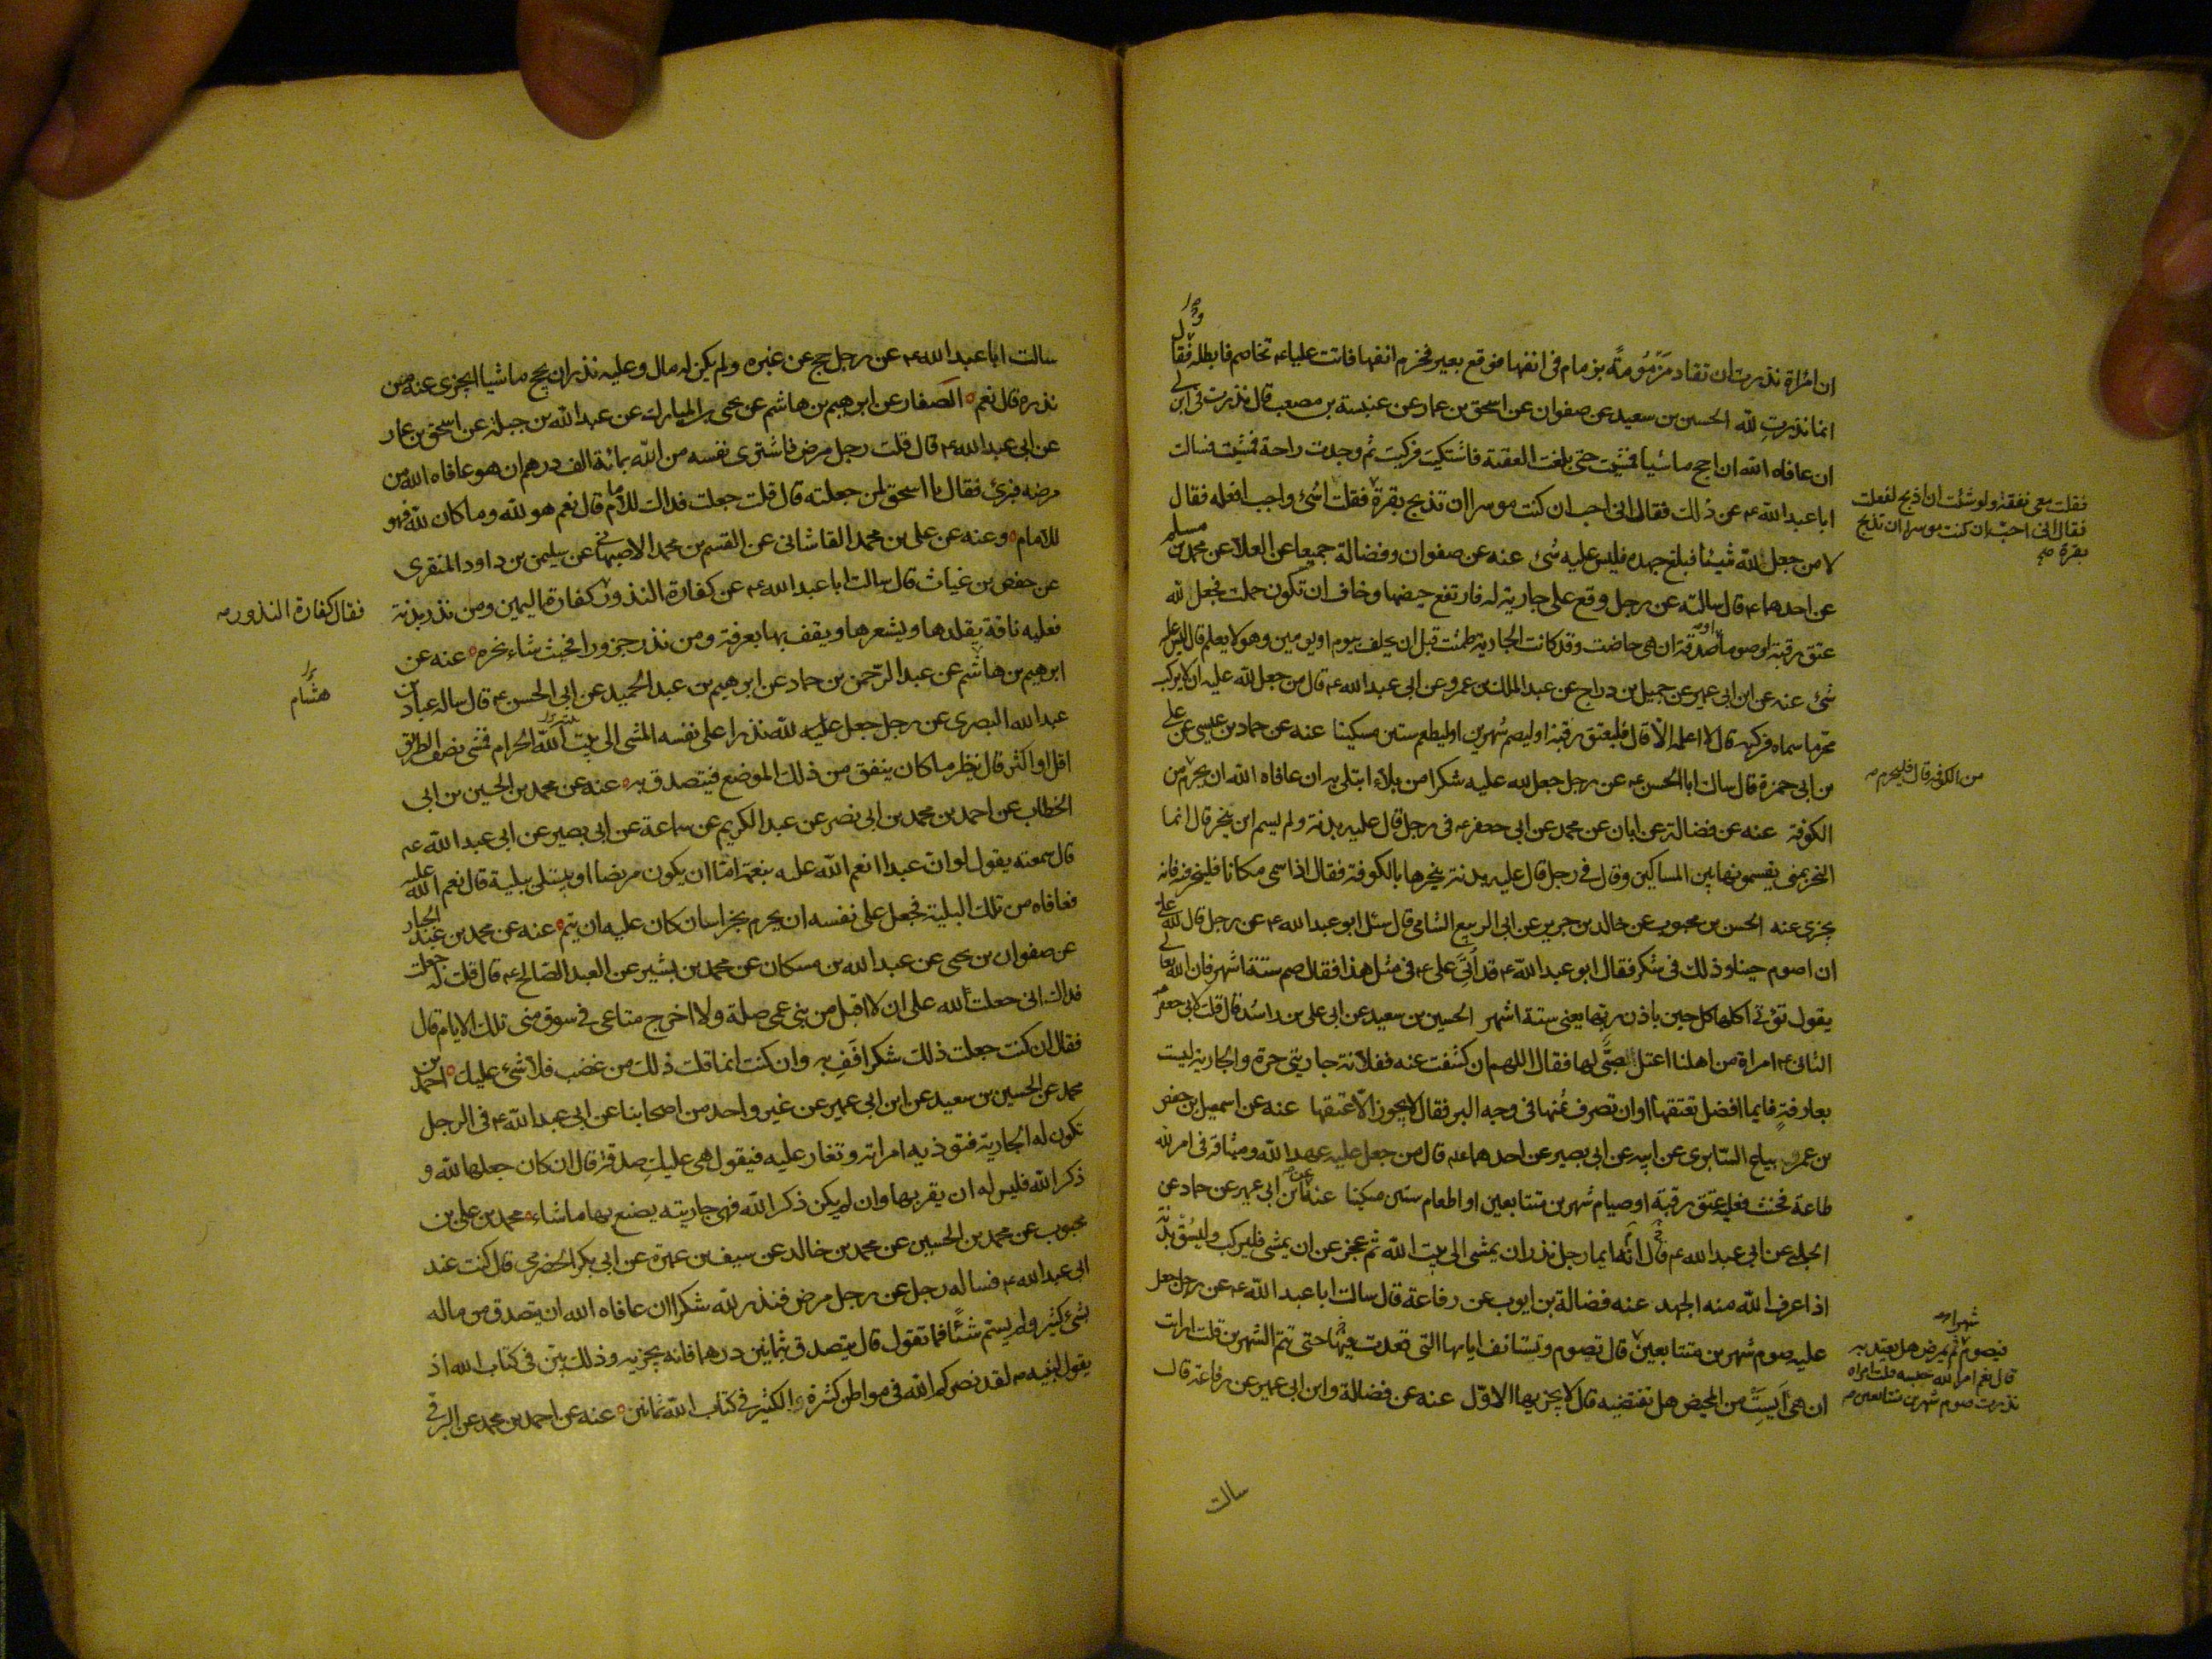 ان امراة نذرت ان تقاد مَزْمُومةً بزمام فى انفها فوقع بعير فخرم انفها فاتت عليا ع تخاصم فابطله فقال
انما نذرتِ لله الحسين بن سعيد عن صفوان عن اسحق بن عمار عن عنبسة بن مصعب قال نذرت فى ابن لى
ان عافاه الله ان احج ماشيا فمشيت حتى بلغت العقبة فاشتكيت فركبت ثم وجدت راحة فمشيت فسالت
ابا عبد الله ع عن ذلك فقال انى احب ان كنت موسرا ان تذبح بقرة فقلت اشئ واجب افعله فقال
فقلت معى نفقة ولو شئت ان اذبح لفعلت
فقال انى احب ان كنت موسرا ان تذبح
بقرة صح
لا من جعل لله شيئا فبلغ جهده فليس عليه شئ عنه عن صفوان وفضالة جميعا عن العلا عن محمد بن مسلم
عن احدهما ع قال سالته عن رجل وقع على جارية له فارتفع حيضها وخاف ان تكون حملت فجعل لله
عتق رقبة او صوما او صدقة ان هى حاضت وقد كانت الجارية طمثت قبل ان يحلف بيوم او يومين وهو لا يعلم قال ليس عليه
شئ عنه عن ابن ابى عمير عن جميل بن دراج عن عبد الملك بن عمرو عن ابى عبد الله ع قال من جعل لله عليه ان لا يركب
محرما سماه فركبه قال لا اعلمه الا قال فليعتق رقبة او ليصم شهرين او ليطعم ستين مسكينا عنه عن حماد بن عيسى عن على
بن ابى حمزة قال سالت ابا الحسن ع عن رجل جعل لله عليه شكرا من بلاء ابتلى به ان عافاه الله ان يحرم من
من الكوفة قال فليحرم
الكوفة عنه عن فضالة عن ابان عن محمد عن ابى جعفر ع فى رجل قال عليه بدنة ولم يسم اين ينحر قال انما
النحر بمنى يقسمونها بين المساكين وقال فى رجل قال عليه بدنة ينحرها بالكوفة فقال اذا سمى مكانا فلينحر فيه فانه
يجزى عنه الحسن بن محبوب عن خالد بن جرير عن ابى الربيع الشامى قال سئل ابو عبد الله ع عن رجل قال لله على
ان اصوم حينا وذلك فى شكر فقال ابو عبد الله ع قد اُتى على ع فى مثل هذا فقال صم ستة اشهر فان الله تعالى
يقول تؤتى اكلها كل حين باذن ربها يعنى ستة اشهر الحسين بن سعيد عن ابى على بن راشد قال قلت لابى جعفر
الثانى ع امراة من اهلنا اعتل صبىّ لها فقالت اللهم ان كشفت عنه ففلانة جاريتى حرة والجارية ليست
بعارفة فايما افضل تعتقها او ان تصرف ثمنها فى وجه البر فقال لا يجوز الا عتقها عنه عن اسمعيل بن جعفر
بن عمر و بياع السابرى عن ابيه عن ابى بصير عن احدهما ع قال من جعل عليه عهد الله وميثاقه فى امر لله
طاعة فحنث فعليه عتق رقبة او صيام شهرين متتابعين او اطعام ستين مسكينا عنه عن ابن ابى عمير عن حماد عن
الحلبى عن ابى عبد الله ع قال انه ايما رجل نذر ان يمشى الى بيت الله ثم عجز عن ان يمشى فليركب وليسُق بدنة
اذا عرف الله منه الجهد عنه فضالة بن ايوب عن رفاعة قال سالت ابا عبد الله ع عن رجل جعل
عليه صوم شهرين متتابعين قال تصوم وتستانف ايامها التى قعدت حتى تتم الشهرين قلت ارايت
فيصوم شهرا ثم يمرض هل يعتد به
قال نعم امر الله حبسه قلت امراة
نذرت صوم شهرين متتابعين
ان هى اَيِستْ من المحيض هل تقضيه قال لا يجزيها الاوّل عنه عن فضالة وابن ابى عمير عن رفاعة قال
سالت
سالت ابا عبد الله ع عن رجل حج عن غيره ولم يكن له مال وعليه نذر ان يحج ماشيا ايجزى عنه من
نذره قال نعم الصفار عن ابرهيم بن هاشم عن يحيى بن المبارك عن عبد الله بن جبلة عن اسحق بن عمار
عن ابى عبد الله ع قال قلت رجل مرض فاشترى نفسه من الله بمائة الف درهم ان هو عافاه الله من
مرضه فبرئ فقال يا اسحق لمن جعلته قال قلت جعلت فداك للامام قال نعم هو لله وما كان لله فهو
للامام وعنه عن على بن محمد القاشانى عن القسم بن محمد الاصبهانى عن سليمن بن داود المنقرى
عن حفص بن غياث قال سالت ابا عبد الله ع عن كفارة النذور كفارة اليمين ومن نذر بدنة
فقال كفارة النذور
فعليه ناقة يقلدها ويشعرها ويقف بها بعرفة ومن نذر جزورا فحيث شاء نحره عنه عن
ابرهيم بن هاشم عن عبد الرحمن بن حماد عن ابرهيم بن عبد الحميد عن ابى الحسن ع قال ساله عباد بن
هشام
عبد الله البصرى عن رجل جعل عليه لله نذرا على نفسه المشى الى بيت الله الحرام فمشى نصف الطريق
اقل او اكثر قال ينظر ما كان ينفق من ذلك الموضع فيتصدق به عنه عن محمد بن الحسين بن ابى
الخطاب عن احمد بن محمد بن ابى نصر عن عبد الكريم عن سماعة عن ابى بصير عن ابى عبد الله ع
قال سمعته يقول لو ان عبدا انعم الله عليه بنعمة اما ان يكون مريضا او يبتلى ببلية قال نعم الله عليه
فعافاه من تلك البلية فجعل على نفسه ان يحرم بخراسان كان عليه ان يتم عنه عن محمد بن عبد الجبار
عن صفوان بن يحيى عن عبد الله بن مسكان عن محمد بن بشير عن العبد الصالح ع قال قلت له جعلت
فداك انى جعلت لله على ان لا اقبل من بنى عمى صلة ولا اخرج متاعى فى سوق منى تلك الايام قال
فقال ان كنت جعلت ذلك شكرا فَفِ به وان كنت انما قلت ذلك من غضب فلا شئ عليك احمد بن
محمد عن الحسين بن سعيد عن ابن ابى عمير عن غير واحد من اصحابنا عن ابى عبد الله ع فى الرجل
تكون له الجارية فتوذيه امراته وتغار عليه فيقول هى عليكِ صدقة قال ان كان جعلها لله و
ذكر الله فليس له ان يقربها وان لم يكن ذكر الله فهى جاريته يصنع بها ما شاء محمد بن على بن
محبوب عن محمد بن الحسين عن محمد بن خالد عن سيف بن عميرة عن ابى بكر الحضرمى قال كنت عند
ابى عبد الله ع فساله رجل عن رجل مرض فنذر لله شكرا ان عافاه الله ان يتصدق من ماله
بشئ كثير ولم يسم شئا فما تقول قال يتصدق بثمانين درهما فانه يجزيه وذلك بيّن فى كتاب الله اذ
يقول لنبيه لقد نصركم الله فى مواطن كثيرة والكثير فى كتاب الله ثمانين عنه عن احمد بن محمد عن البرقى